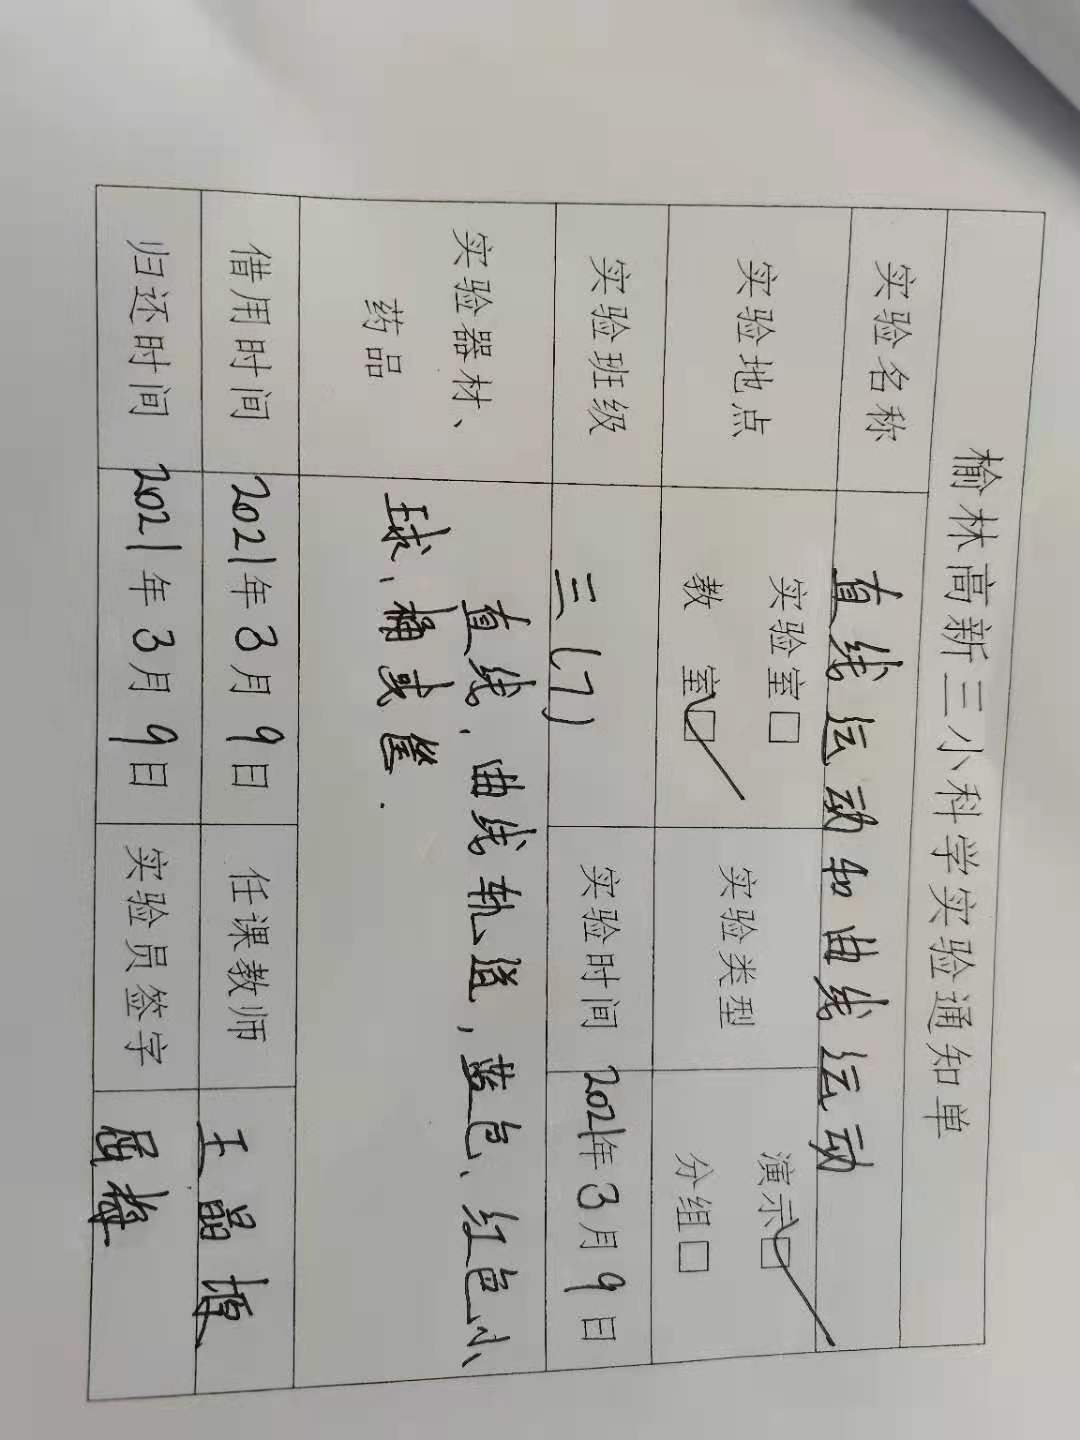 榆林高新三小科学实验通知单
实验名称 直线运动和曲线运动
实验地点 实验室□ 教 室☑ 实验类型 演示☑ 分组□
实验班级 三(7) 实验时间 2021年3月9日
实验器材、药品 直线、曲线轨道,蓝色、红色小
球、桶或筐.
借用时间 2021年3月9日 任课教师 王晶
归还时间 2021年3月9日 实验员签字 屈梅